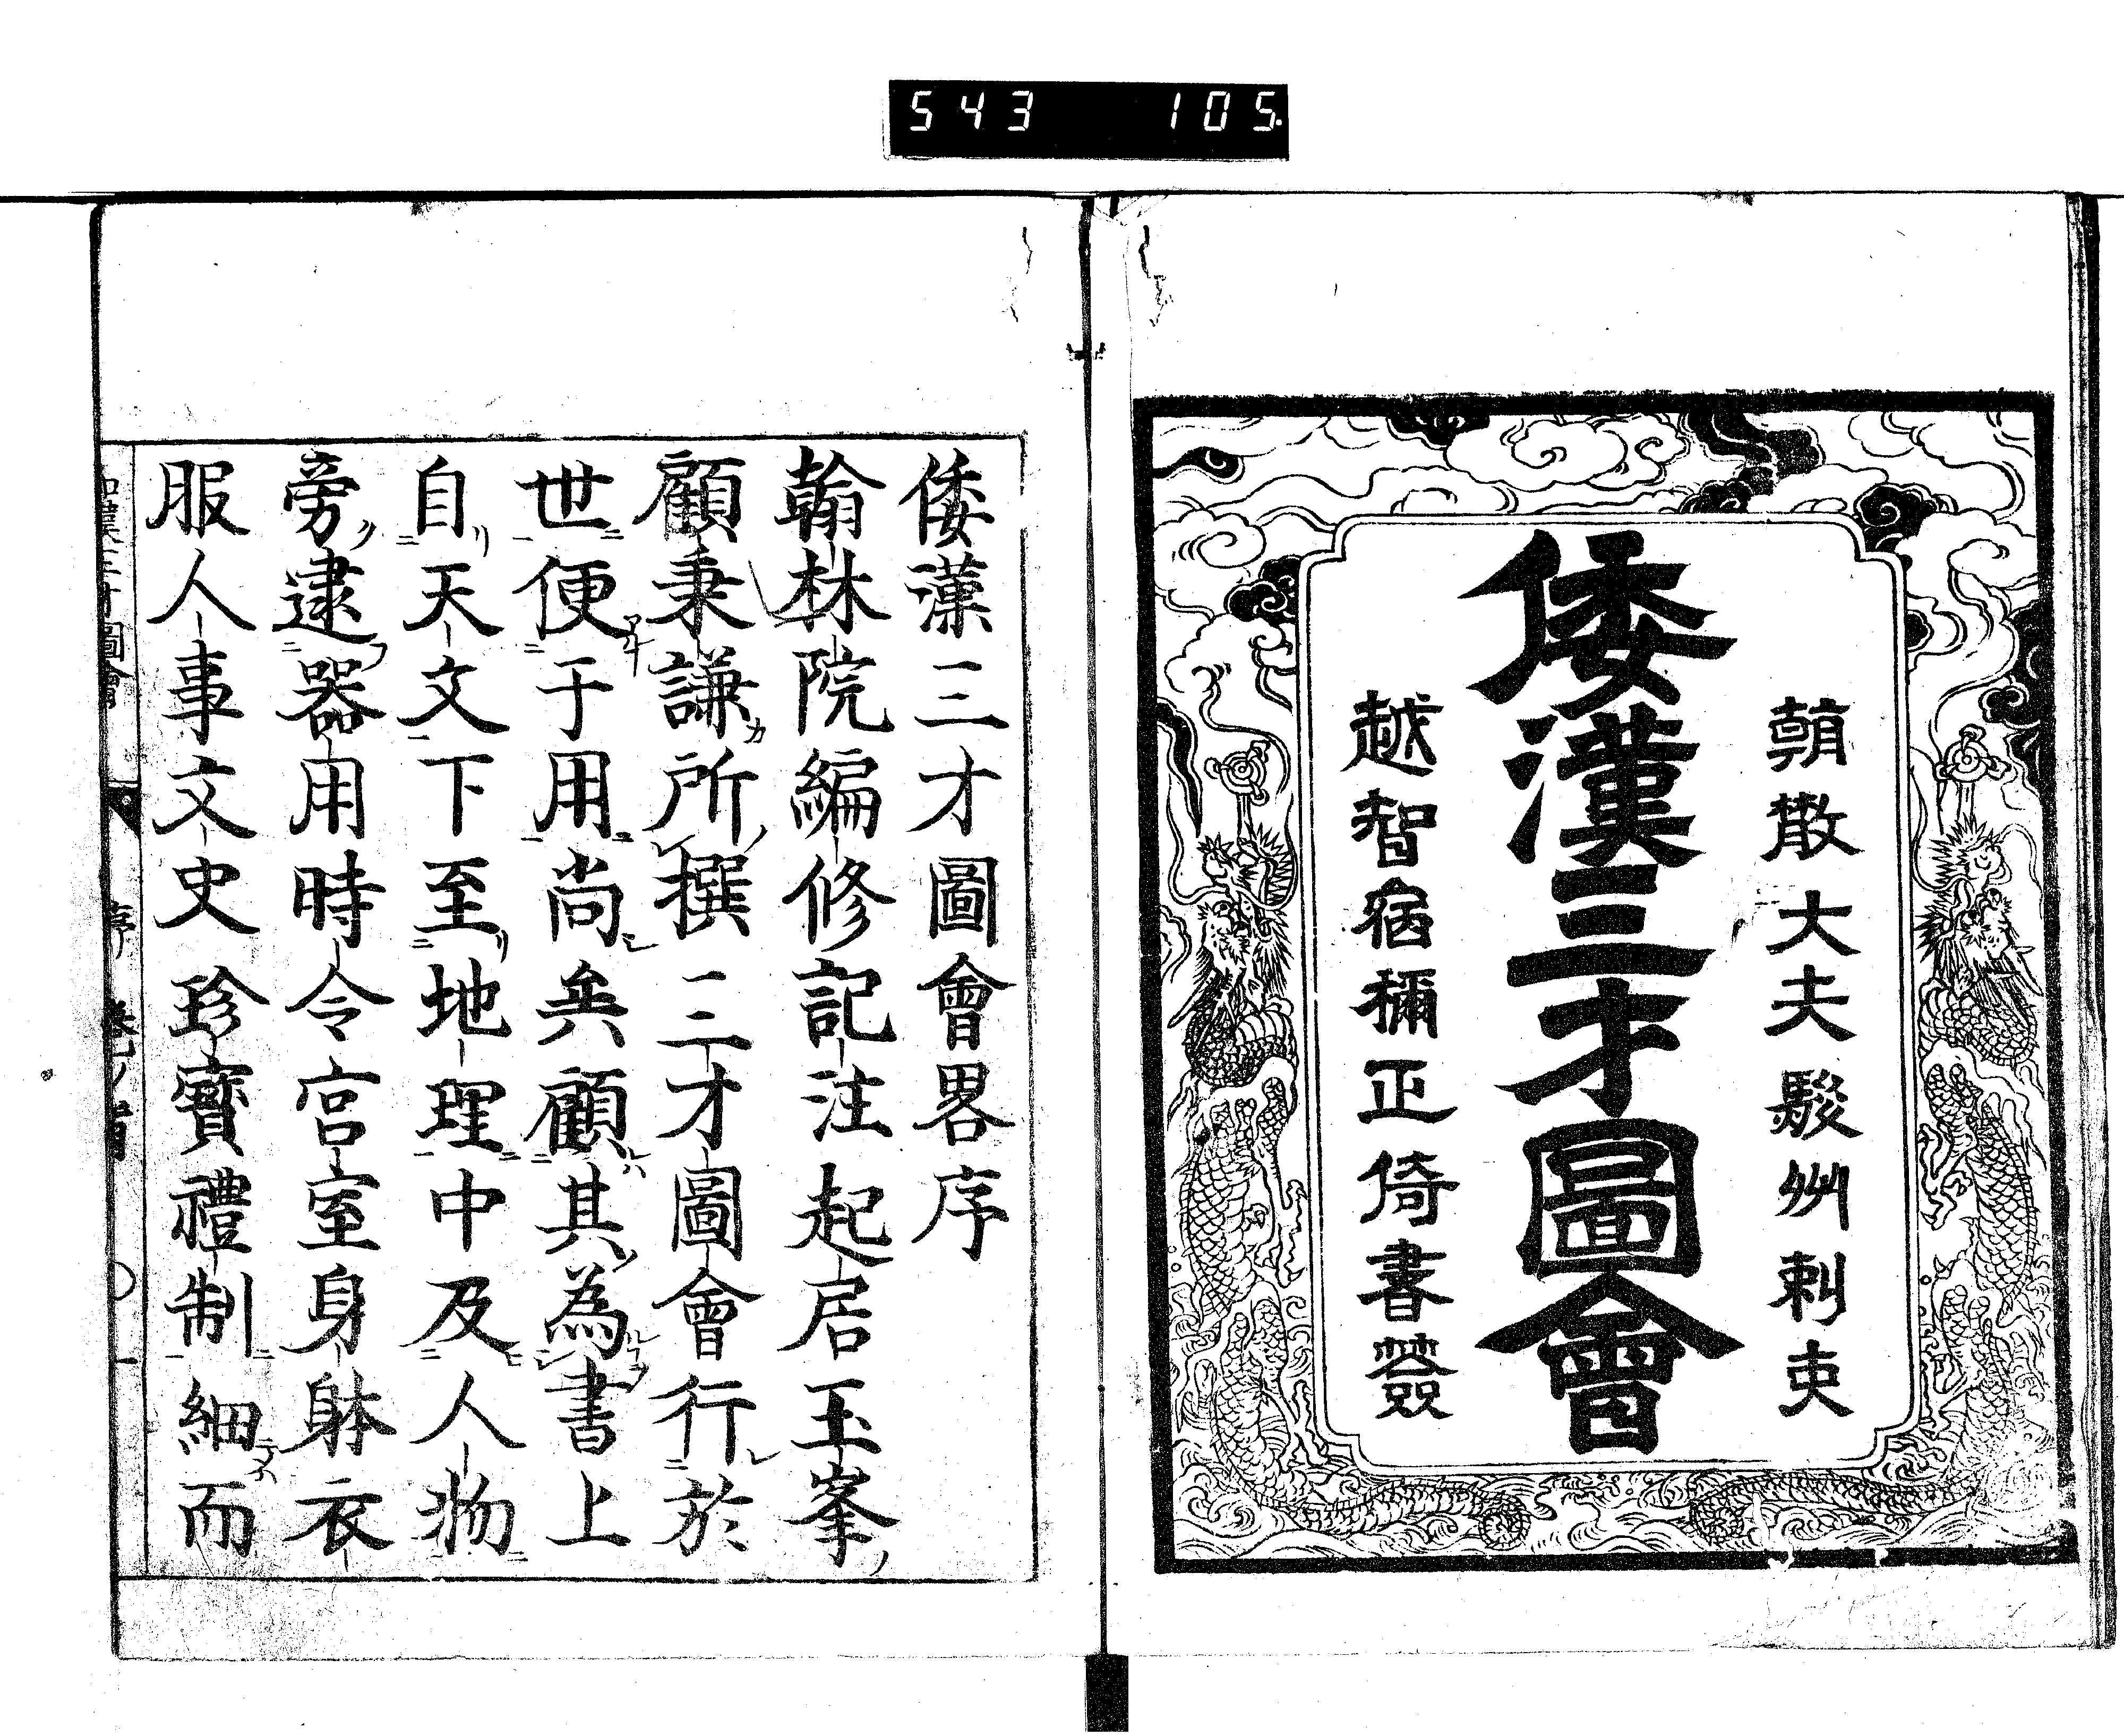 543 105.
朝散大夫駿州刺史
倭漢三才圖會
越智宿禰正倚書簽
倭漢三才圖會畧序
翰林院編修記注起居玉峯
顧秉謙所撰三才圖會行於
世便于用尚矣顧其為書上
自天文下至地理中及人物
旁逮器用時令宮室身躰衣
服人事文史珍寶禮制細而
序